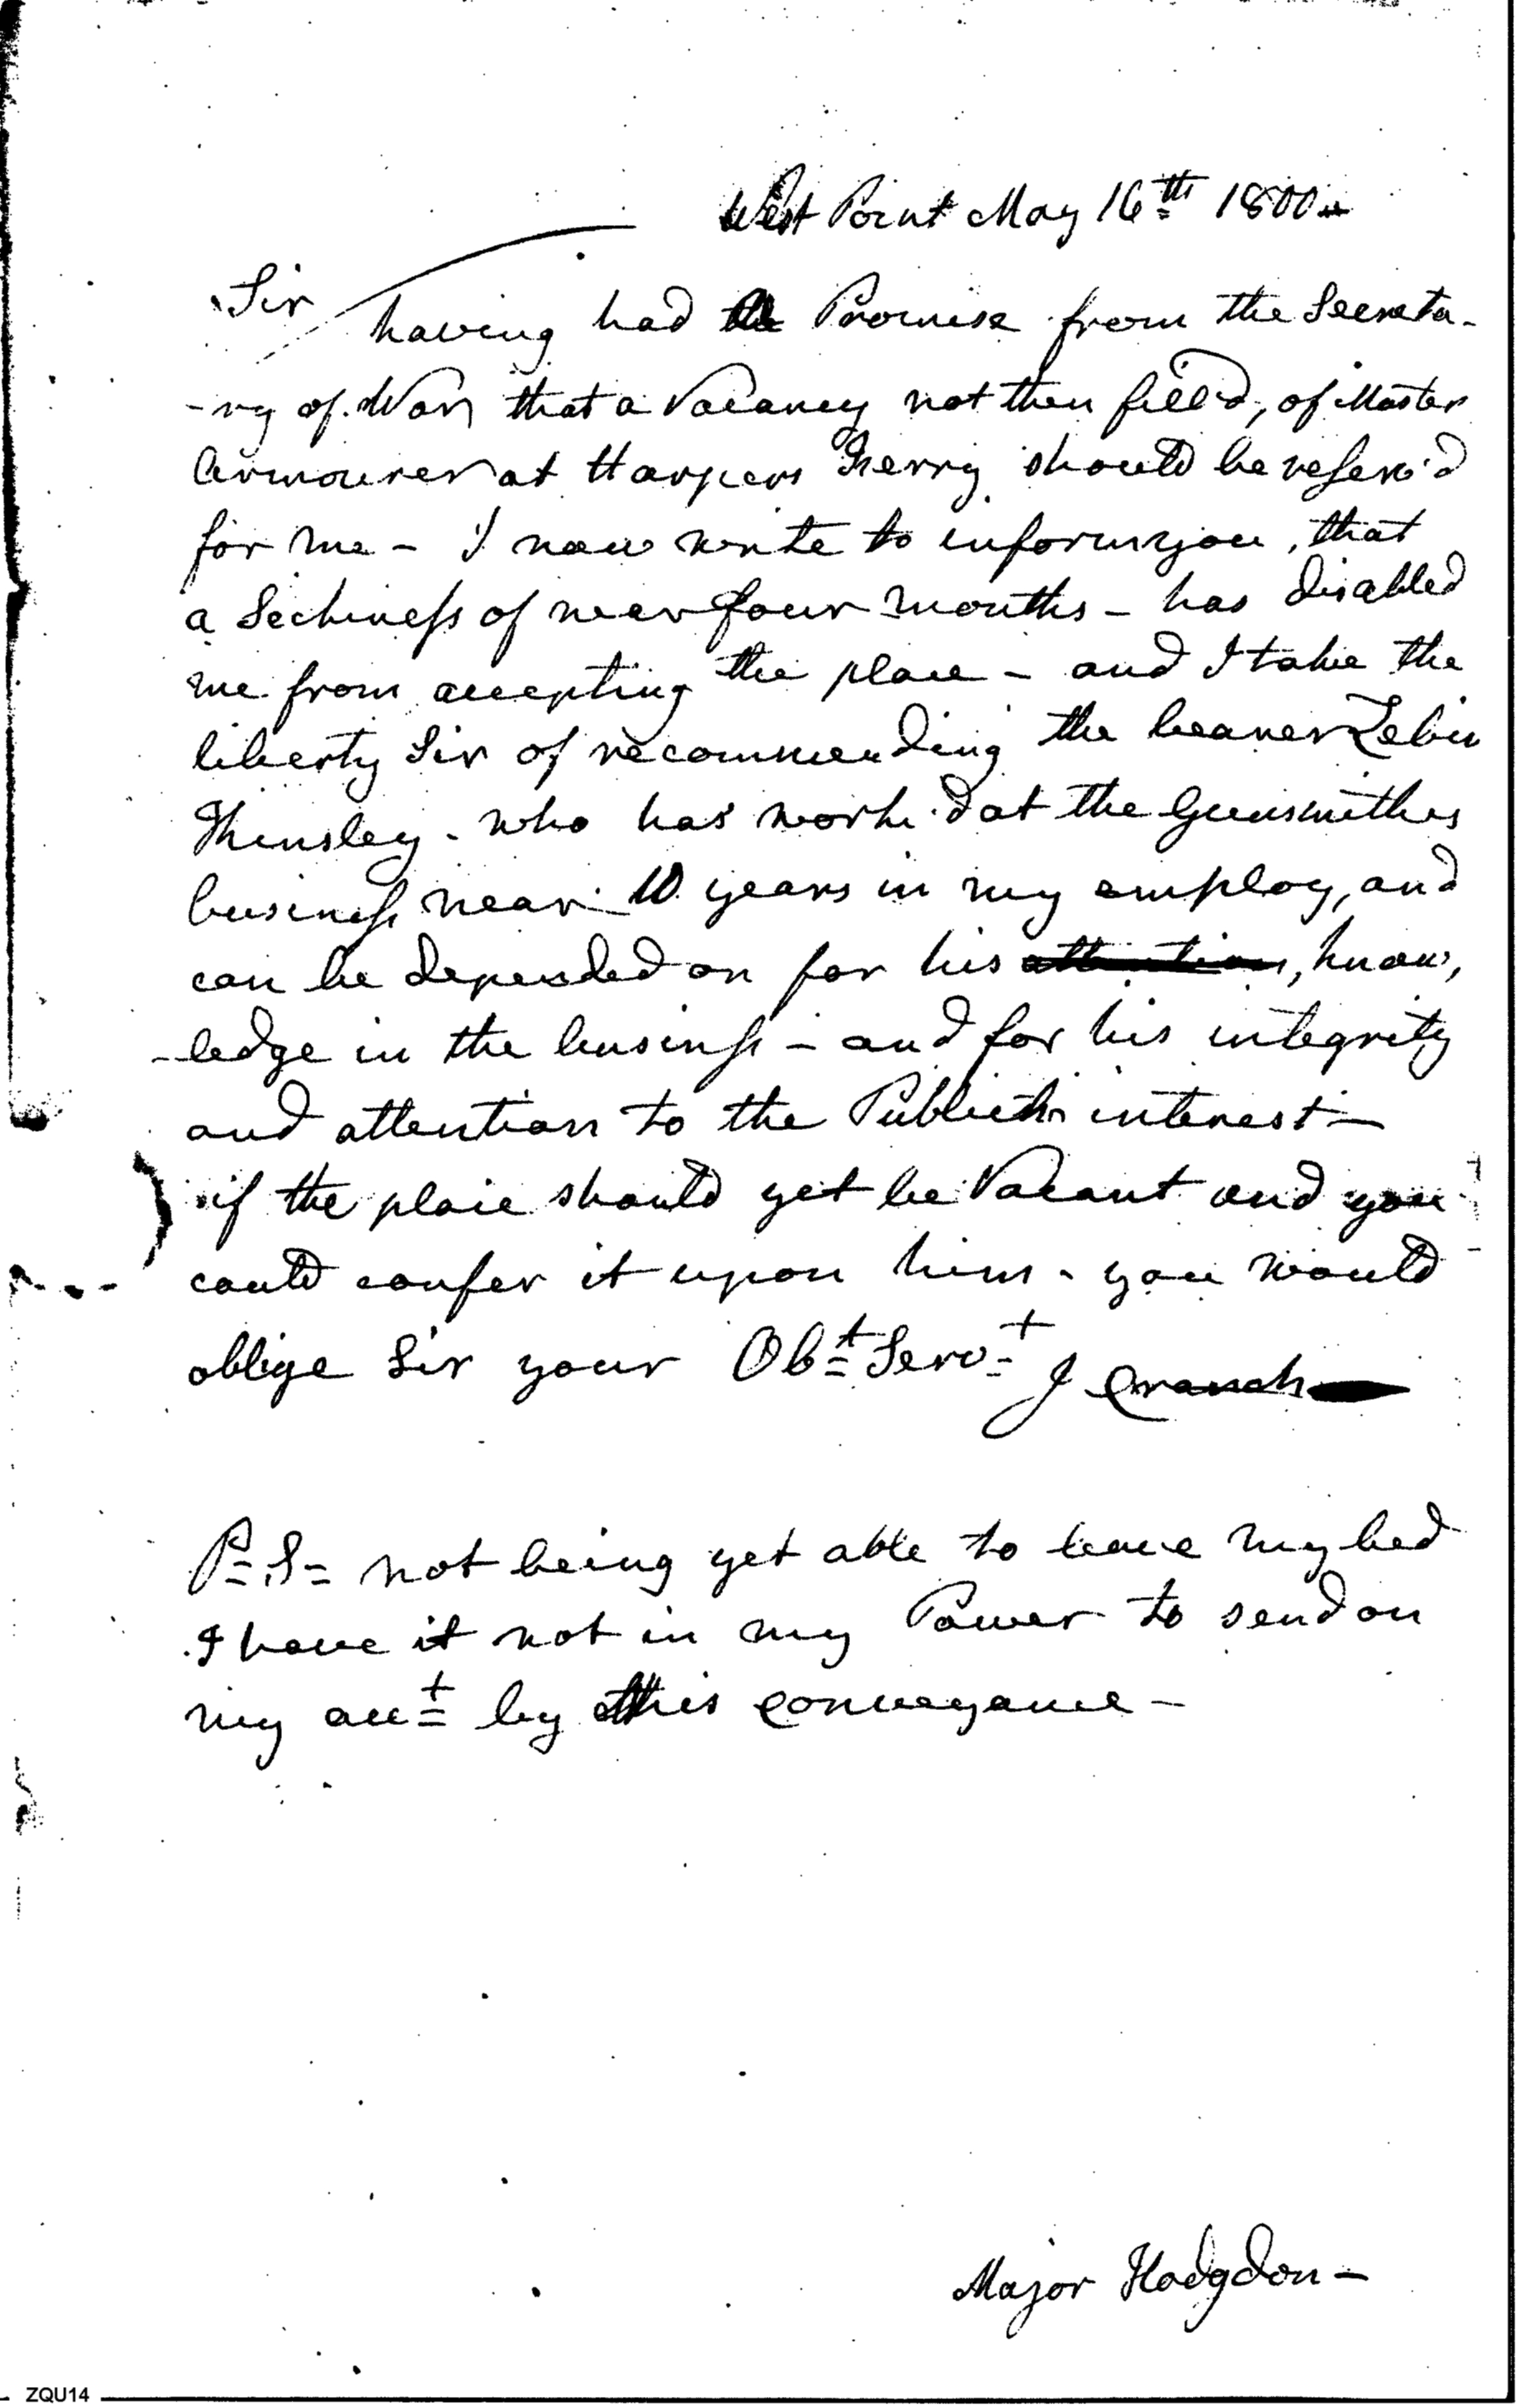 West Point May 16th 1800
Sir having had the Promise from the Secreta-
-ry of War that a Vacancy not then filld, of Master
Armourer at Harpers Ferry should be reserv'd
for me - I now write to inform you, that
a Sickness of near four months - has disabled
me from accepting the place - and I take the
liberty Sir of recommending the bearer
- who has work'd at the Gunsmiths
business near 10 years in my employ, and
can be depended on for his attention, know,
-ledge in the business - and for his integrity
and attention to the Publick interest -
if the place should yet be Vacant and you
could confer it upon him - you would
oblige Sir your Obt Servt J Cranch
P.S. not being yet able to leave my bed
I have it not in my Power to send on
my acct by this conveyance -
Major Hodgdon -
ZQU14